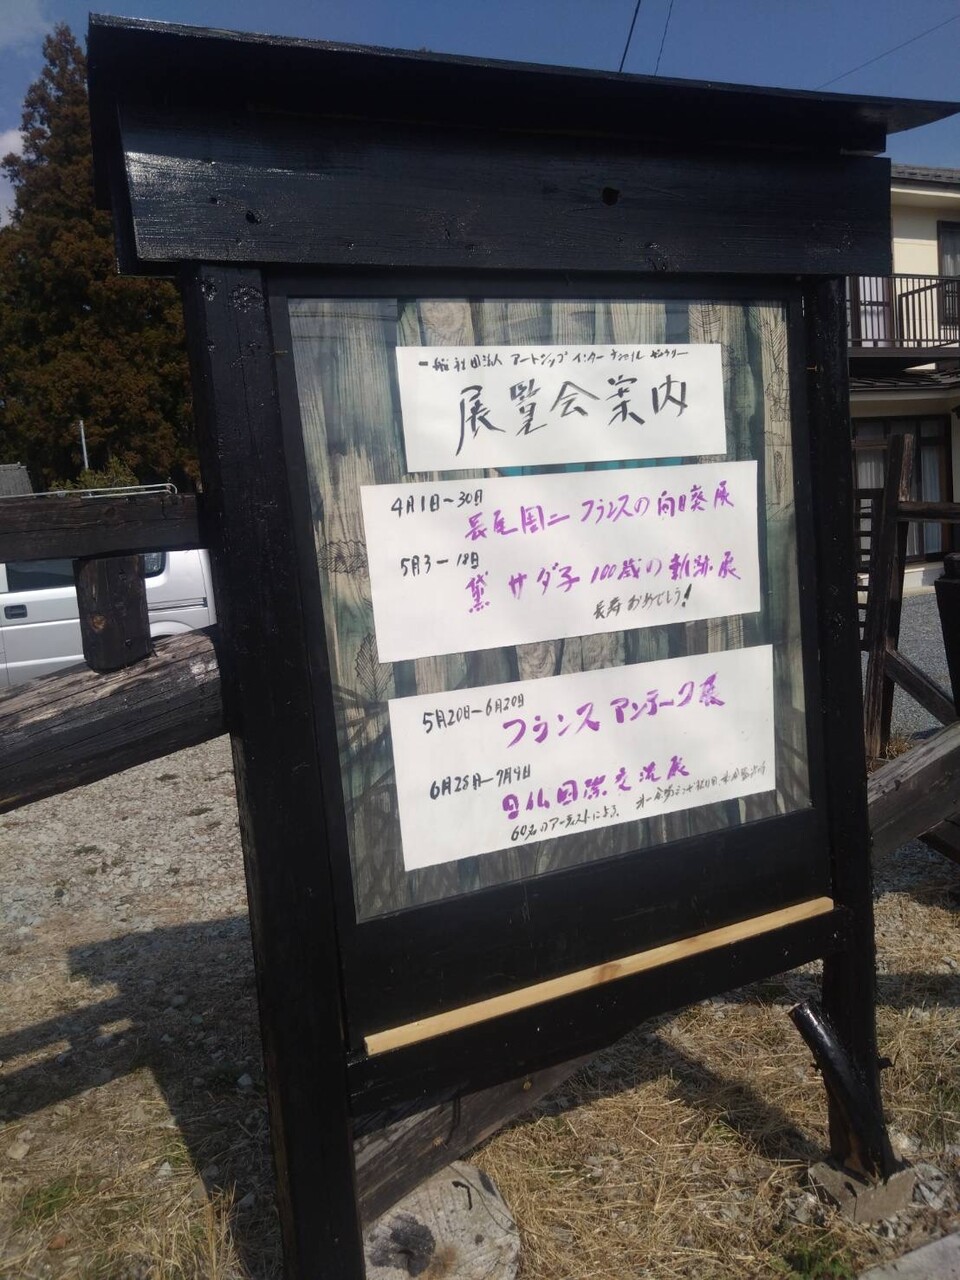 一般社団法人 アートシップ インターナショナル ギャラリー
展覧会案内
4月1日〜30日
長尾周二 フランスの向日葵展
5月3-18日
黛 サダ子 100歳の軌跡展
長寿おめでとう!
5月20日-6月20日
フランス アンテーク展
6月28日-7月9日
日仏国際交流展
60名のアーティストによる。